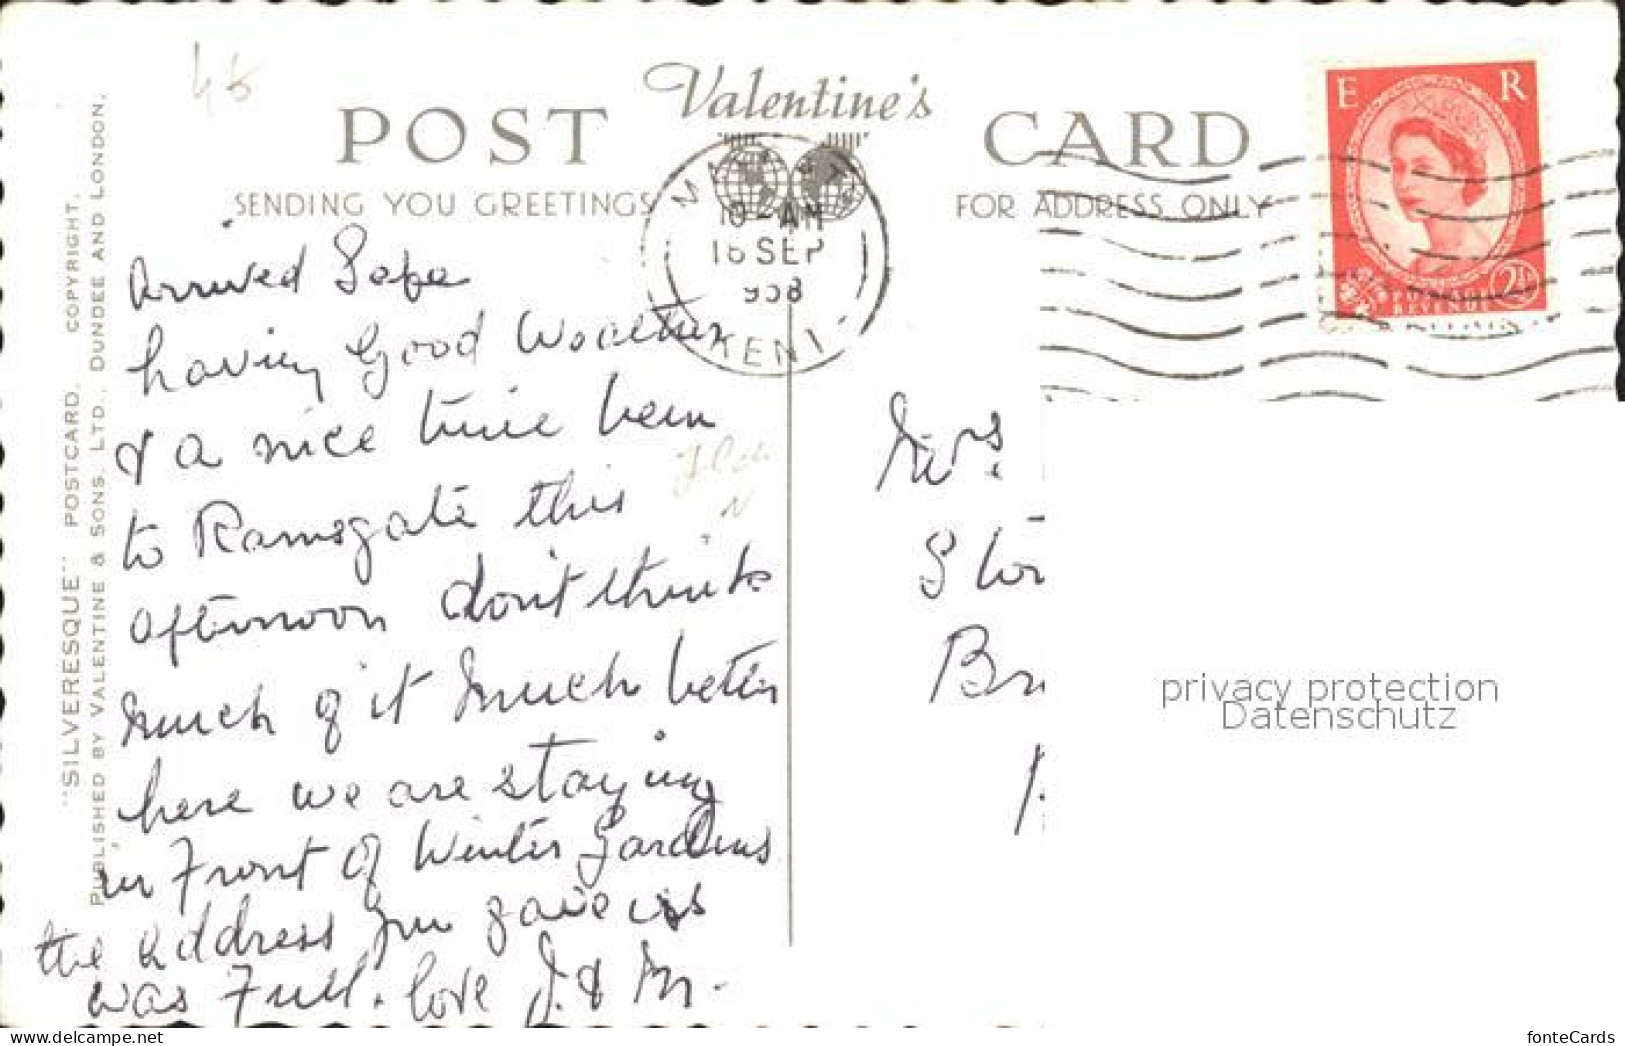 46
Valentine's
POST CARD
SENDING YOU GREETINGS
FOR ADDRESS ONLY
E R
POSTAGE
REVENUE
2½
10 - AM
16 SEP
958
KENT
"SILVERESQUE" POSTCARD. COPYRIGHT.
PUBLISHED BY VALENTINE & SONS. LTD., DUNDEE AND LONDON.
Arrived Safe
having Good Weather
& a nice time been
to Ramsgate this
afternoon don't think
much of it much better
here we are staying
in Front of Winter Gardens
the address you gave us
was Full. love J. & M.
Mrs.
privacy protection
Datenschutz
www.delcampe.net
fonteCards